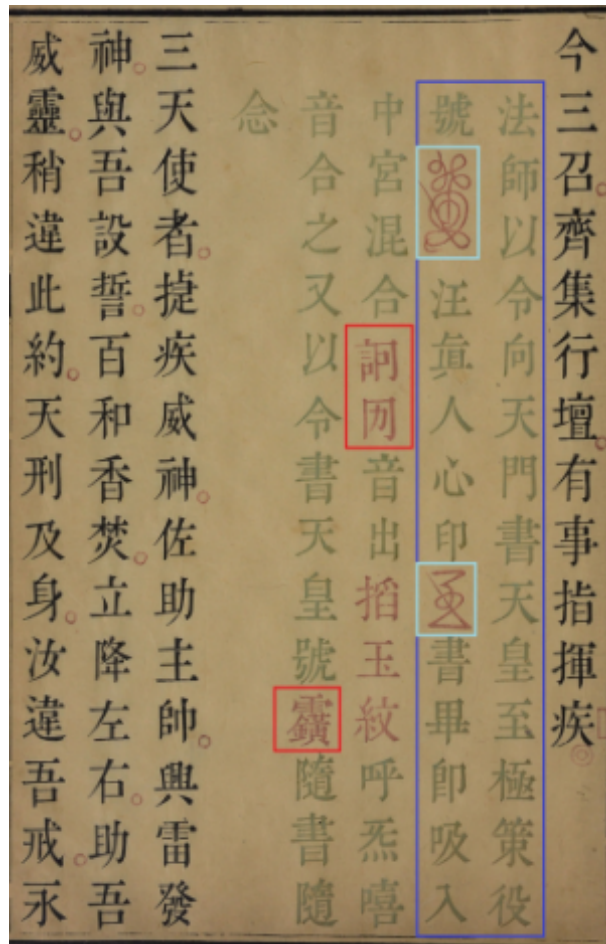 今三召齊集行壇有事指揮疾
法師以令向天門書天皇至極策役
號汪眞人心印書畢卽吸入
中宮混合訶历音出搯玉紋呼炁嘻
音合之又以令書天皇號隨書隨
念
三天使者捷疾威神佐助主帥興雷發
神與吾設誓百和香焚立降左右助吾
威靈稍違此約天刑及身汝違吾戒永